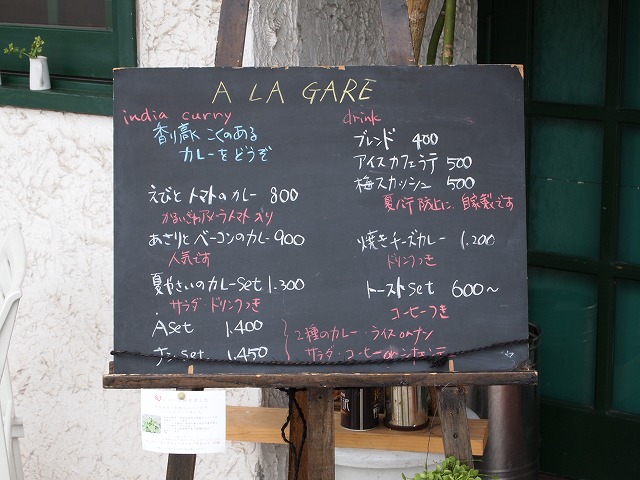 A LA GARE
india curry
香り高く こくのある
カレーをどうぞ
えびと トマトのカレー 800
かるいざわアメーラトマト入り
あさりとベーコンのカレー 900
人気です
夏やさいのカレーset 1.300
サラダ・ドリンクつき
Aset 1.400
ナンset 1.450
2種のカレー・ライスorナン
サラダ・コーヒーor
drink
ブレンド 400
アイスカフェラテ 500
梅スカッシュ 500
夏バテ防止に、自家製です
焼きチーズカレー 1.200
ドリンクつき
トーストset 600〜
コーヒーつき